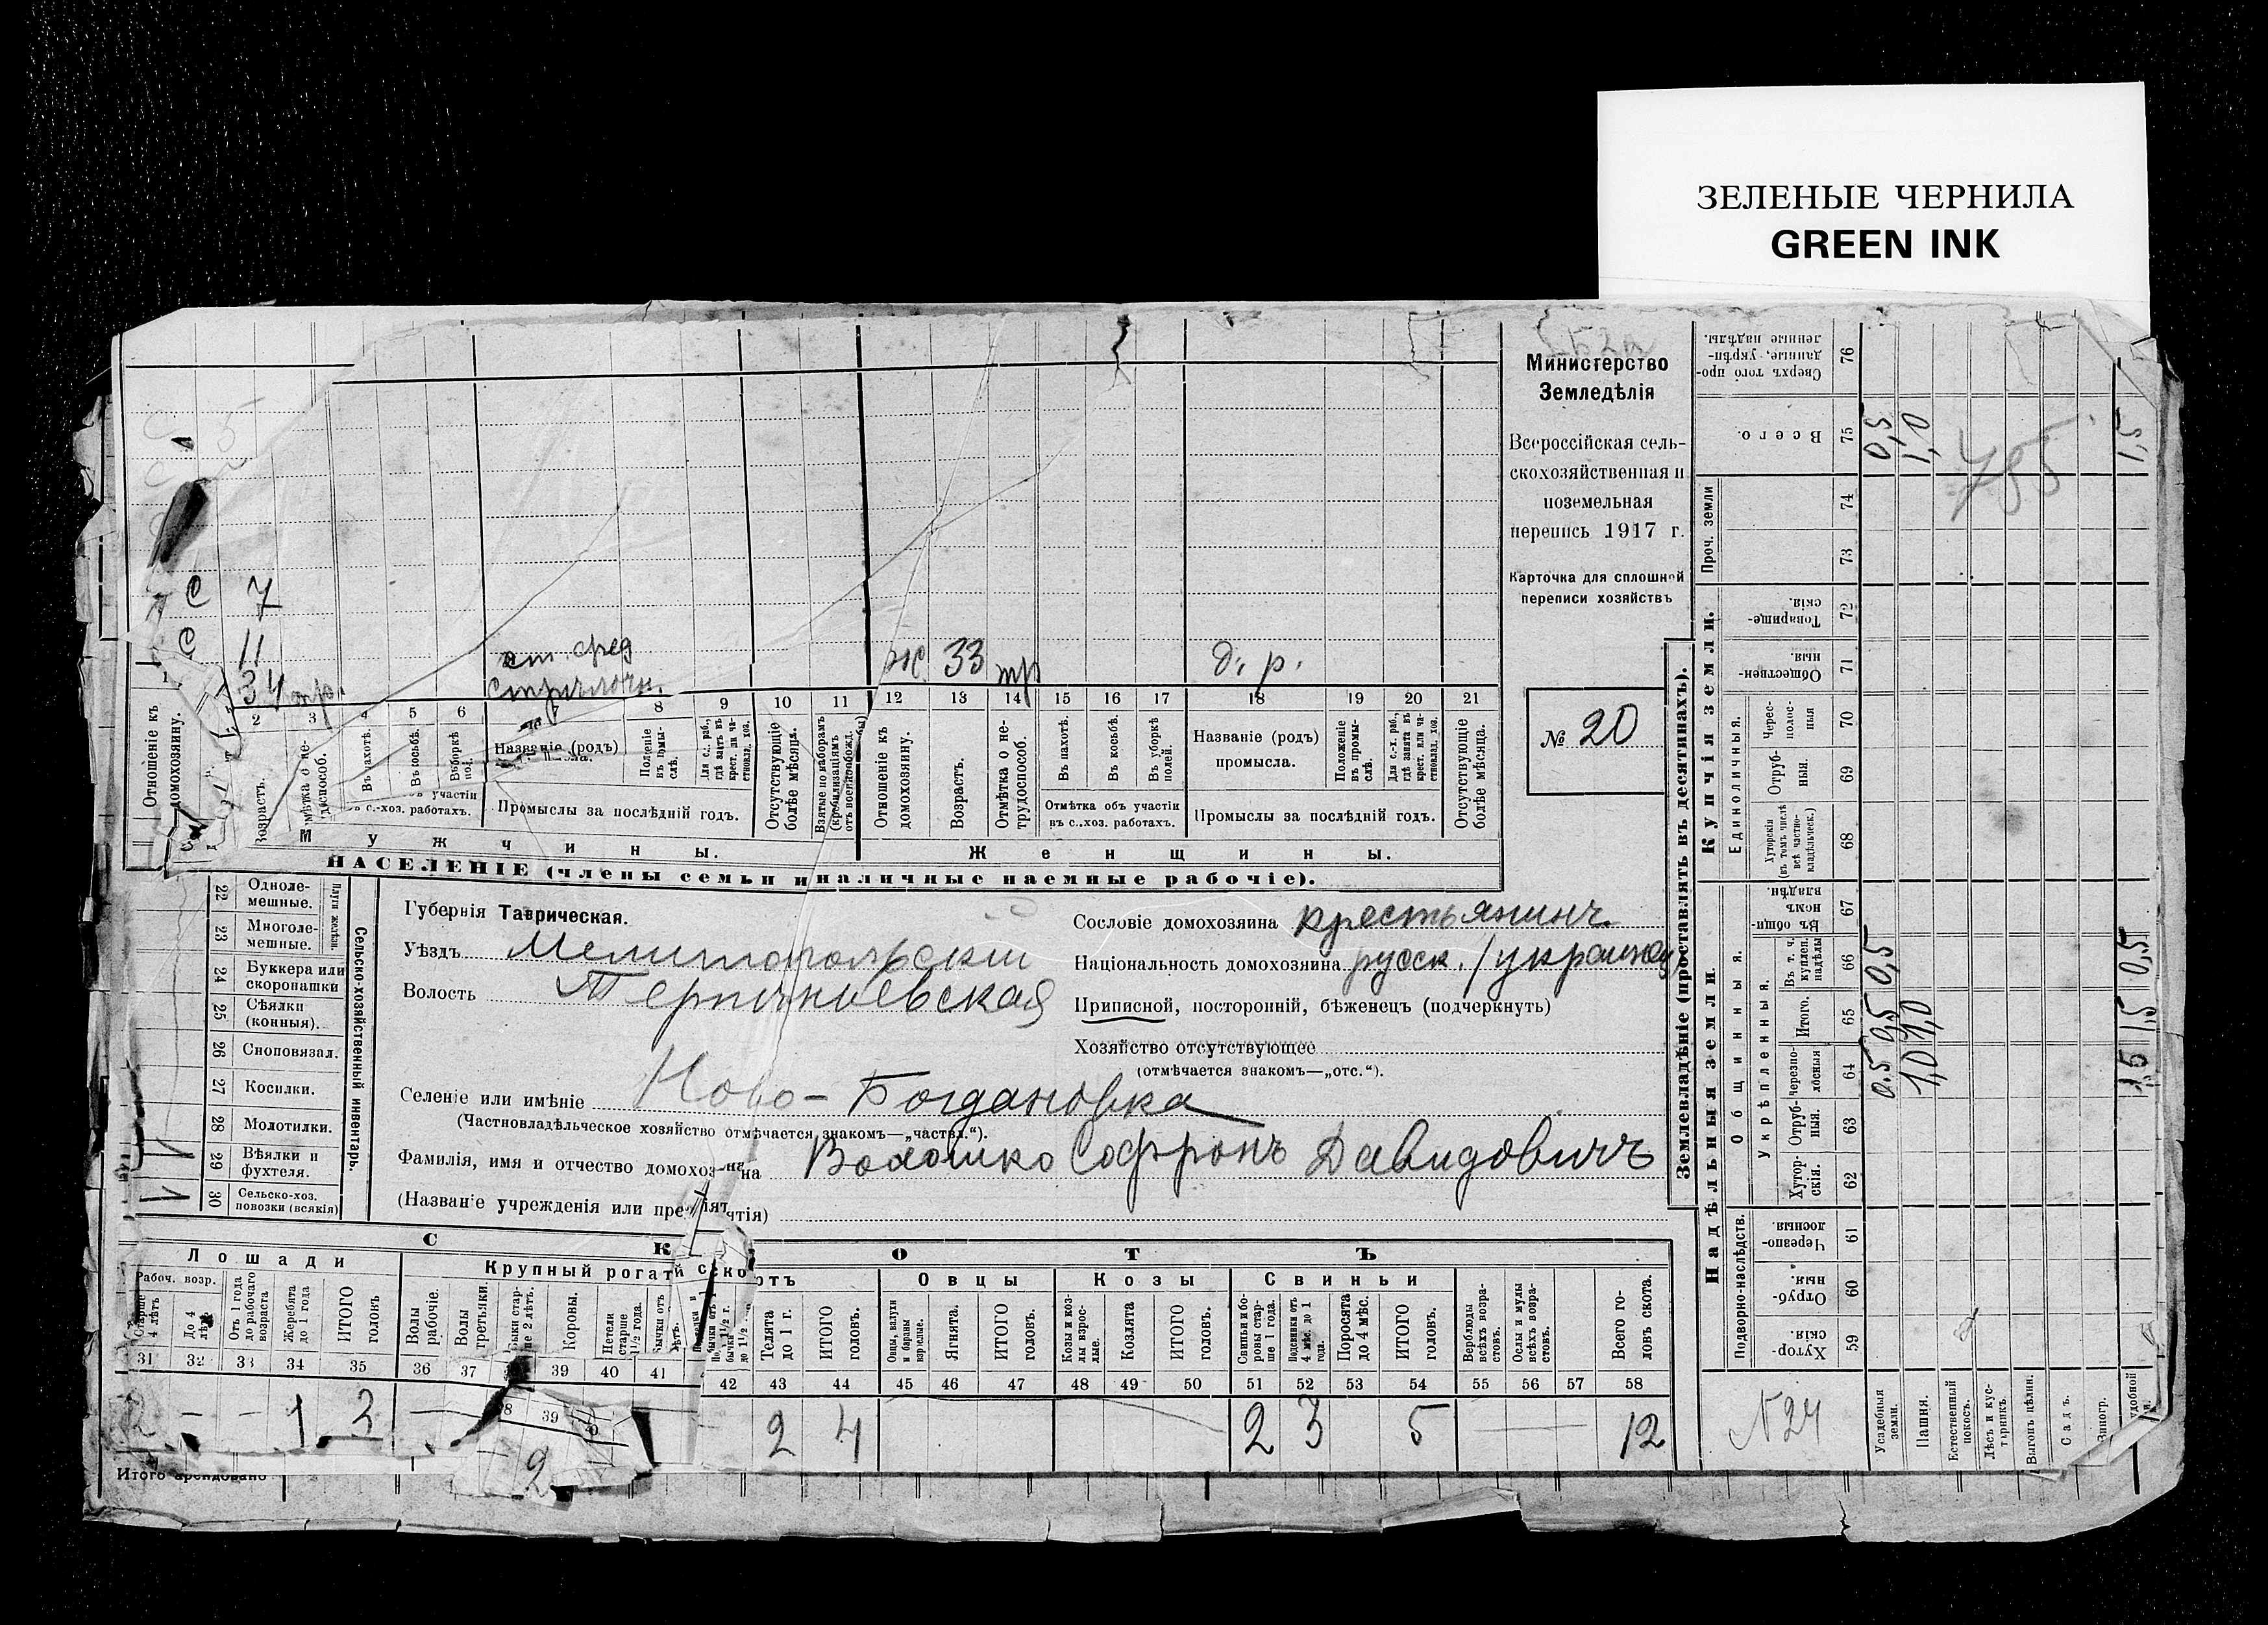 ЗЕЛЕНЫЕ ЧЕРНИЛА
GREEN INK
Министерство
Земледѣлія
Всероссійская сель-
скохозяйственная и
поземельная
перепись 1917 г.
Карточка для сплошной
переписи хозяйствъ
№ 20
С 7
С 11
34 тр.
ж 33 тр д. р.
2 3 4 5 6 8 9 10 11 12 13 14 15 16 17 18 19 20 21
Отношеніе къ домохозяину.
Возрастъ.
Въ пахотѣ.
Въ косьбѣ.
Промыслы за послѣдній годъ.
Отсутствующіе болѣе мѣсяца.
Отношеніе къ домохозяину.
Возрастъ.
Отмѣтка о не-трудоспособ.
Въ пахотѣ.
Въ косьбѣ.
Въ уборкѣ полей.
Отмѣтка объ участіи въ с.-хоз. работахъ.
Названіе (родъ) промысла.
Положеніе въ промы-слѣ.
Для с.-х. раб., гдѣ занята въ крест. или ча-стновлад. хоз.
Промыслы за послѣдній годъ.
Отсутствующіе болѣе мѣсяца.
Мужчины.
Женщины.
НАСЕЛЕНІЕ (члены семьи и наличные наемные рабочіе).
22 Одноле-мешные.
23 Многоле-мешные.
24 Буккера или скоропашки
25 Сѣялки (конныя).
26 Сноповязал.
27 Косилки.
28 Молотилки.
29 Вѣялки и фухтеля.
30 Сельско-хоз. повозки (всякія)
Сельско-хозяйственный инвентарь.
Губернія Таврическая.
Уѣздъ Мелитопольскій
Волость Терпѣніевская
Селеніе или имѣніе Ново-Богдановка
(Частновладѣльческое хозяйство отмѣчается знакомъ—„частвл.“).
Фамилія, имя и отчество домохозяина Волошко Софронъ Давидовичъ
(Названіе учрежденія или предпріятія)
Сословіе домохозяина крестьянинъ
Національность домохозяина русск. /украинец
Приписной, посторонній, бѣженецъ (подчеркнуть)
Хозяйство отсутствующее
(отмѣчается знакомъ—„отс.“).
СКОТЪ
Лошади
Крупный рогатый скотъ
Овцы
Козы
Свиньи
Рабоч. возр.
Старше 4 лѣтъ
До 4 лѣтъ
Отъ 1 года до рабочаго возраста
Жеребята до 1 года
ИТОГО головъ
Волы рабочіе.
Волы третьяки.
Коровы.
Нетели старше 1½ года.
Телята до 1 г.
ИТОГО головъ.
Овцы, валухи и бараны взрослые.
Ягнята.
ИТОГО головъ.
Козы и коз-лы взрос-лые.
Козлята
ИТОГО головъ.
Свиньи и бо-ровы стар-ше 1 года.
Подсвинки отъ 4 мѣс. до 1 года.
Поросята до 4 мѣс.
ИТОГО головъ.
Верблюды всѣхъ возра-стовъ.
Ослы и мулы всѣхъ возра-стовъ.
Всего го-ловъ скота.
31 32 33 34 35 36 37 39 40 41 42 43 44 45 46 47 48 49 50 51 52 53 54 55 56 57 58
2 — — 1 3 — 2 2 4 2 3 5 — 12
Итого арендовано
Землевладѣніе (проставлять въ десятинахъ).
Надѣльныя земли.
Купчія земли.
Проч. земли
Подворно-наслѣдств.
Общинныя.
Укрѣпленныя.
Единоличныя.
Хутор-скія. 59
Отруб-ныя. 60
Черезпо-лосныя 61
Хутор-скія. 62
Отруб-ныя. 63
Черезпо-лосныя 64
Итого. 65
Въ т. ч. куплен. надѣлы 66
Въ общин-номъ владѣн. 67
Хуторскія (въ томъ числѣ всѣ частно-владѣльческ.) 68
Отруб-ныя. 69
Черес-полос-ныя 70
Обществен-ныя. 71
Товарище-скія. 72
73
74
Всего. 75
Сверхъ того про-данные, укрѣп-ленные надѣлы. 76
Усадебныя земли. 0,5 0,5 0,5 0,5
Пашня. 1,0 1,0 1,0
Естественный покосъ.
Лѣсъ и кус-тарникъ.
Выгонъ цѣлин.
Садъ.
Виногр.
удобной 1,5 1,5 0,5 1,5
N 24